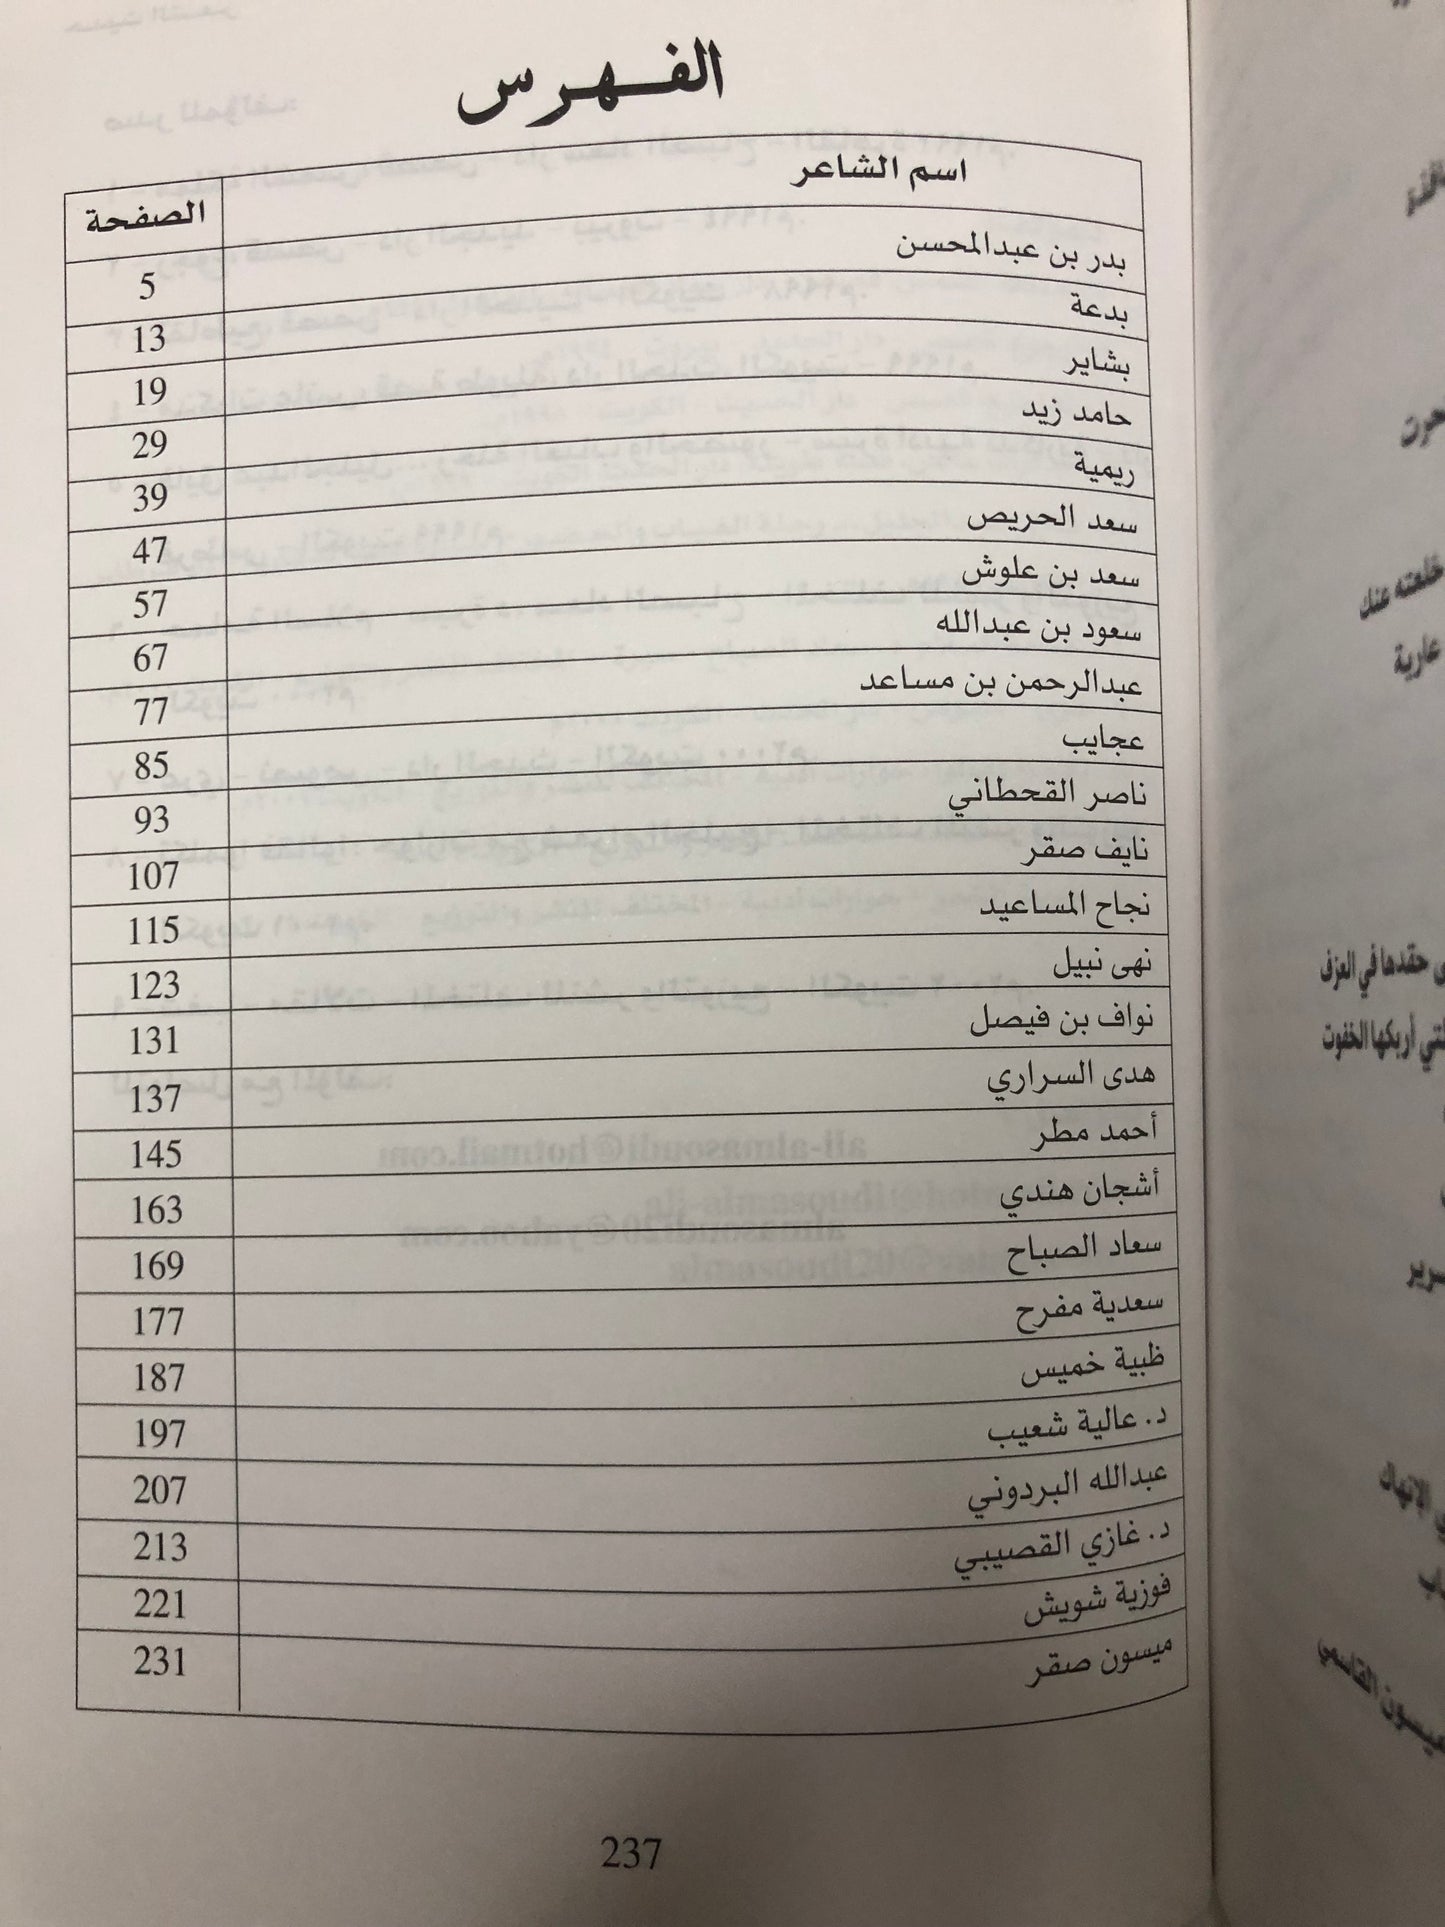 الفهرس
اسم الشاعر الصفحة
بدر بن عبدالمحسن 5
بدعة 13
بشاير 19
حامد زيد 29
ريمية 39
سعد الحريص 47
سعد بن علوش 57
سعود بن عبدالله 67
عبدالرحمن بن مساعد 77
عجايب 85
ناصر القحطاني 93
نايف صقر 107
نجاح المساعيد 115
نهى نبيل 123
نواف بن فيصل 131
هدى السراري 137
أحمد مطر 145
أشجان هندي 163
سعاد الصباح 169
سعدية مفرح 177
ظبية خميس 187
د. عالية شعيب 197
عبدالله البردوني 207
د. غازي القصيبي 213
فوزية شويش 221
ميسون صقر 231
237
خلعته عنك
عارية
حقدها في العزف
أربكها الخفوت
القاسمي